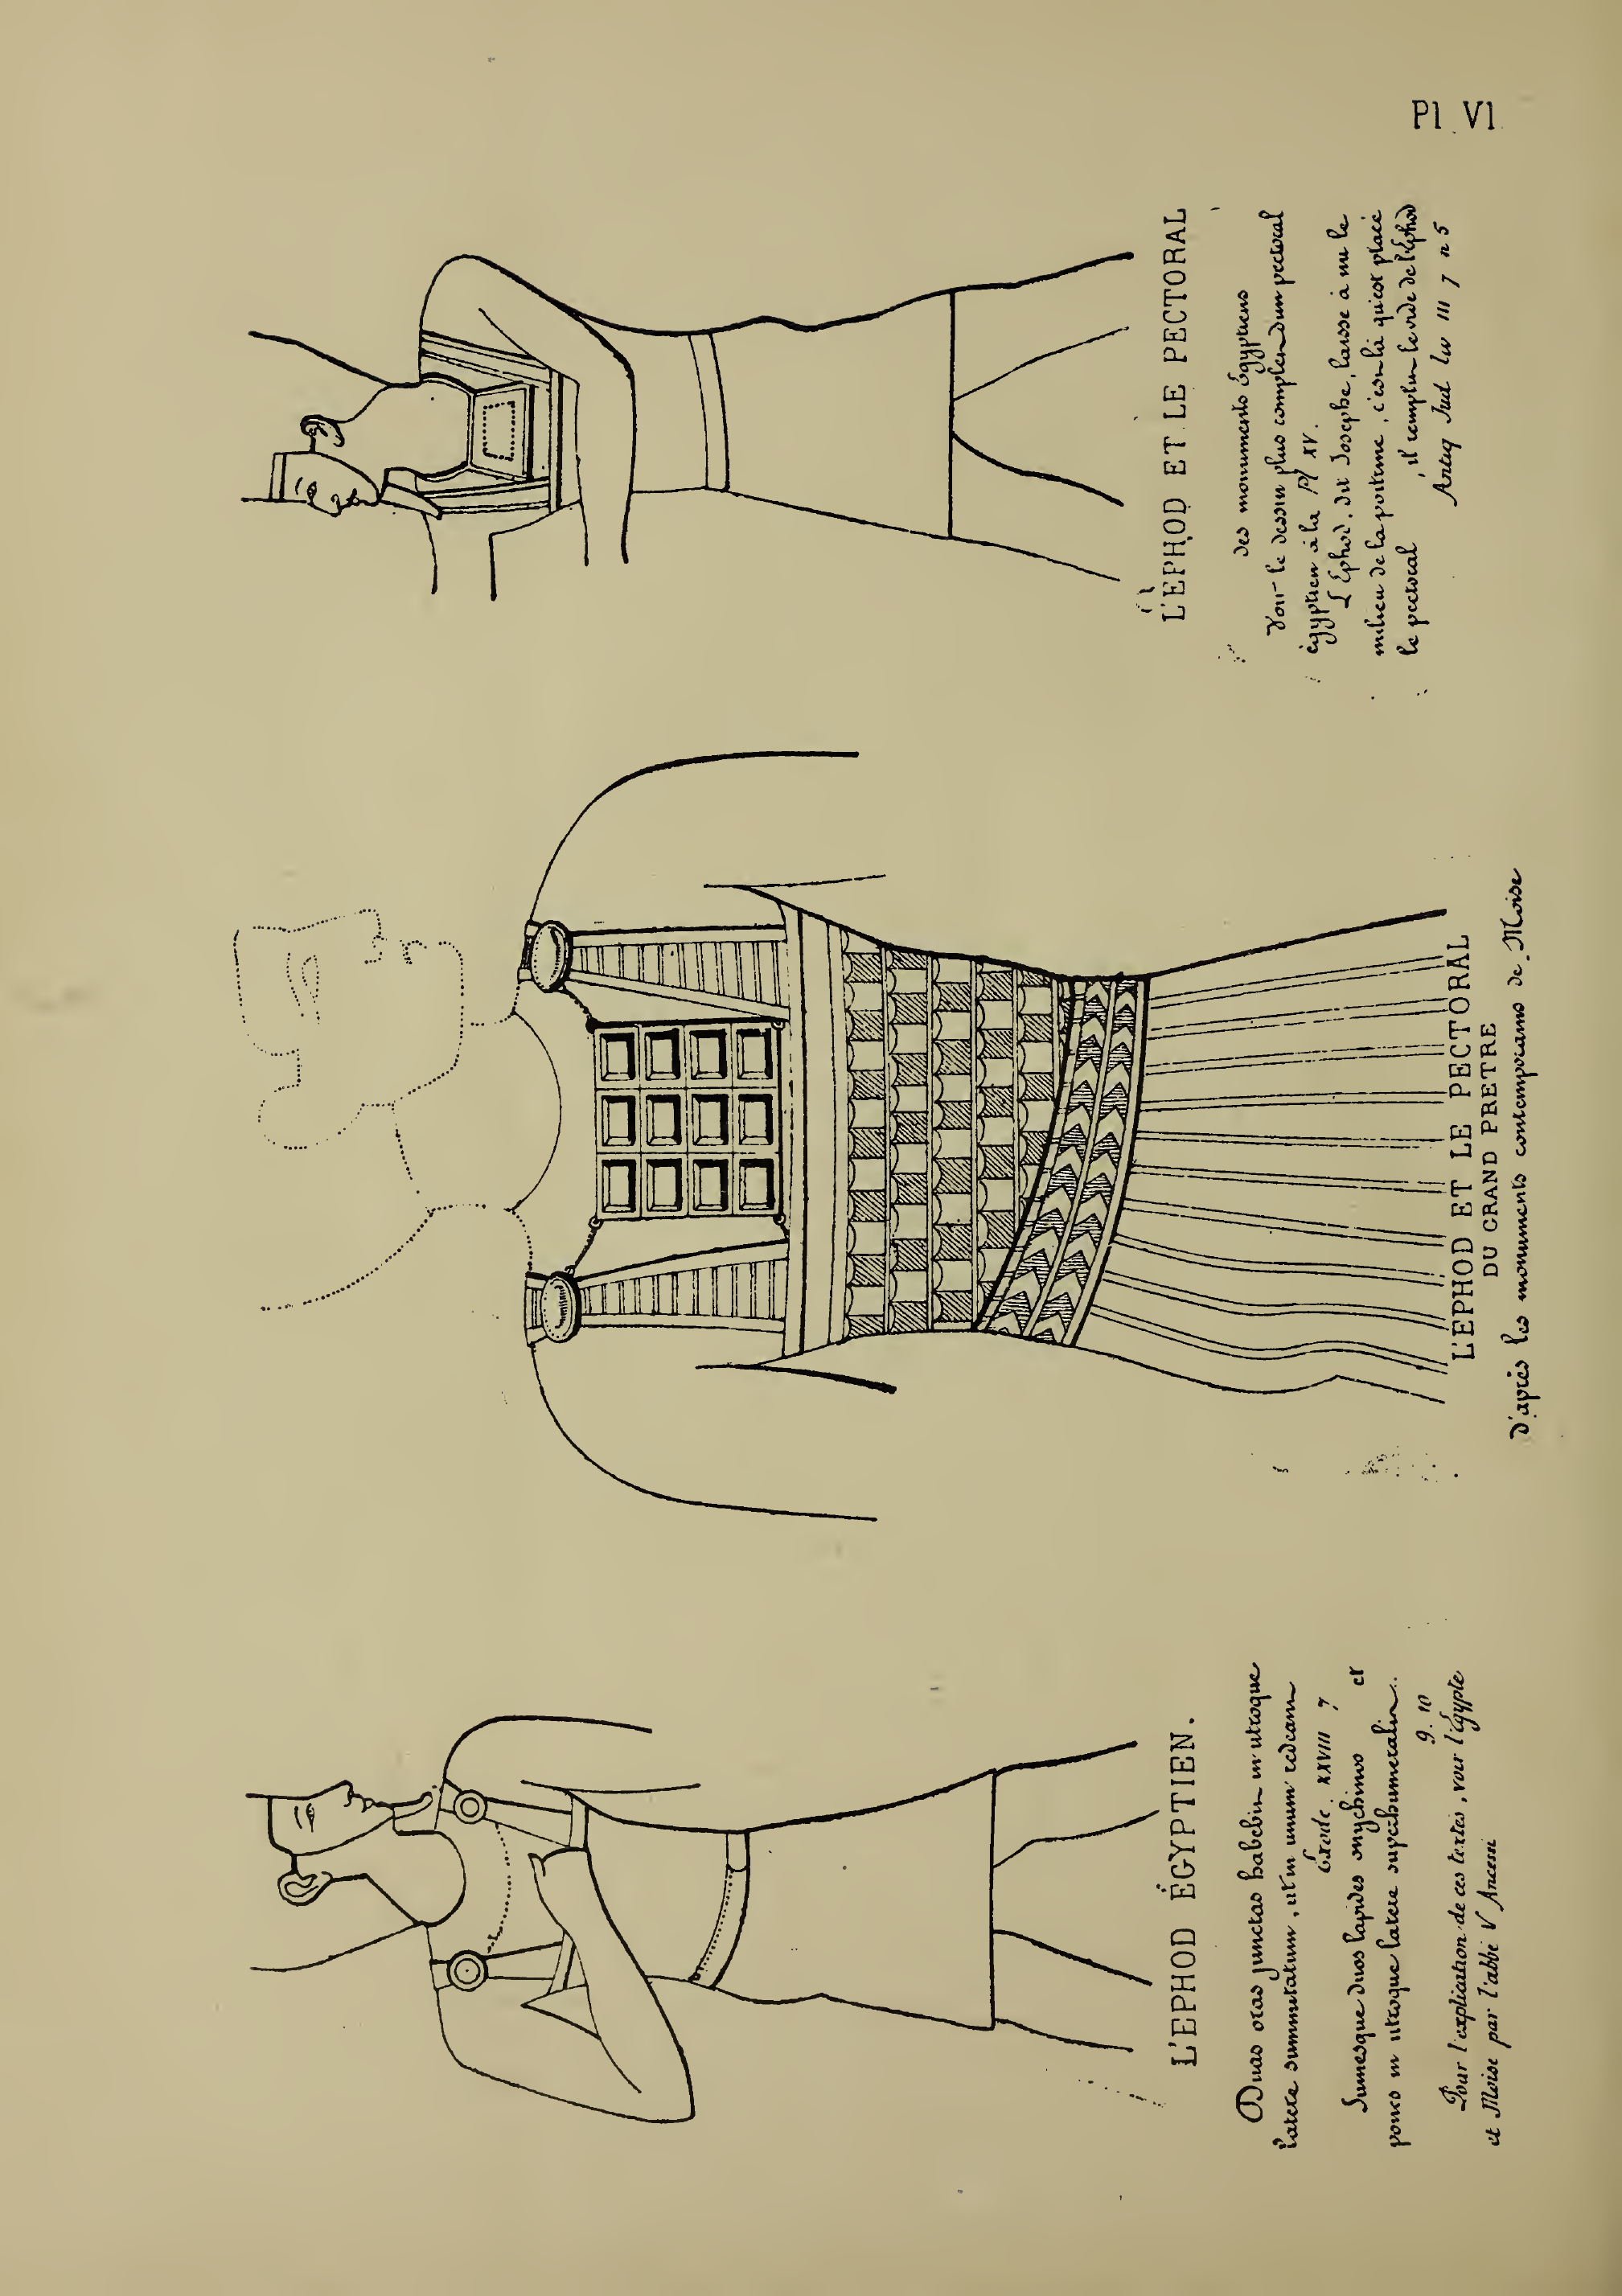 Pl VI
L'EPHOD ÉGYPTIEN.
Duas oras junctas habebit in utroque
latere summitatum, ut in unum redeant
Exode. XXVIII 7
Sumesque duos lapides onychinos et
pones in utroque latere superhumeralis..
9. 10
Pour l'explication de ces textes, voir l'Égypte
et Moise par l'abbé V Ancessi
L'EPHOD ET LE PECTORAL
DU GRAND PRETRE
D'après les monuments contemporains de Moise
L'EPHOD ET LE PECTORAL
des monuments Égyptiens
Voir le dessin plus complet d'un pectoral
égyptien à la Pl XV.
L'Ephod. dit Josephe, laisse à nu le
milieu de la poitrine, c'est là qu'est placé
le pectoral, il remplit le vide de l'Ephod
Antiq Jud Liv III 7 n 5